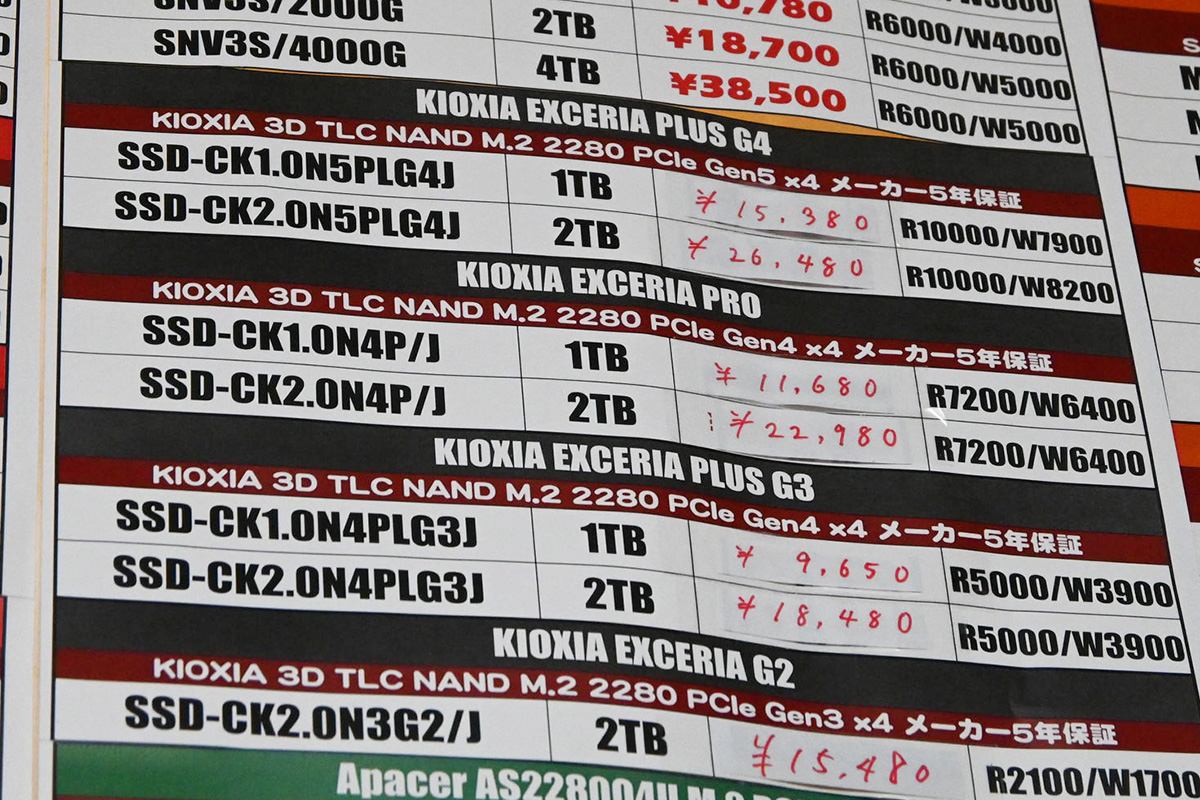 SNV3S/2000G 2TB ¥18,700 R6000/W5000
SNV3S/4000G 4TB ¥38,500 R6000/W5000
KIOXIA EXCERIA PLUS G4
KIOXIA 3D TLC NAND M.2 2280 PCIe Gen5 x4 メーカー5年保証
SSD-CK1.0N5PLG4J 1TB ¥15,380 R10000/W7900
SSD-CK2.0N5PLG4J 2TB ¥26,480 R10000/W8200
KIOXIA EXCERIA PRO
KIOXIA 3D TLC NAND M.2 2280 PCIe Gen4 x4 メーカー5年保証
SSD-CK1.0N4P/J 1TB ¥11,680 R7200/W6400
SSD-CK2.0N4P/J 2TB ¥22,980 R7200/W6400
KIOXIA EXCERIA PLUS G3
KIOXIA 3D TLC NAND M.2 2280 PCIe Gen4 x4 メーカー5年保証
SSD-CK1.0N4PLG3J 1TB ¥9,650 R5000/W3900
SSD-CK2.0N4PLG3J 2TB ¥18,480 R5000/W3900
KIOXIA EXCERIA G2
KIOXIA 3D TLC NAND M.2 2280 PCIe Gen3 x4 メーカー5年保証
SSD-CK2.0N3G2/J 2TB ¥15,480 R2100/W1700
Apacer